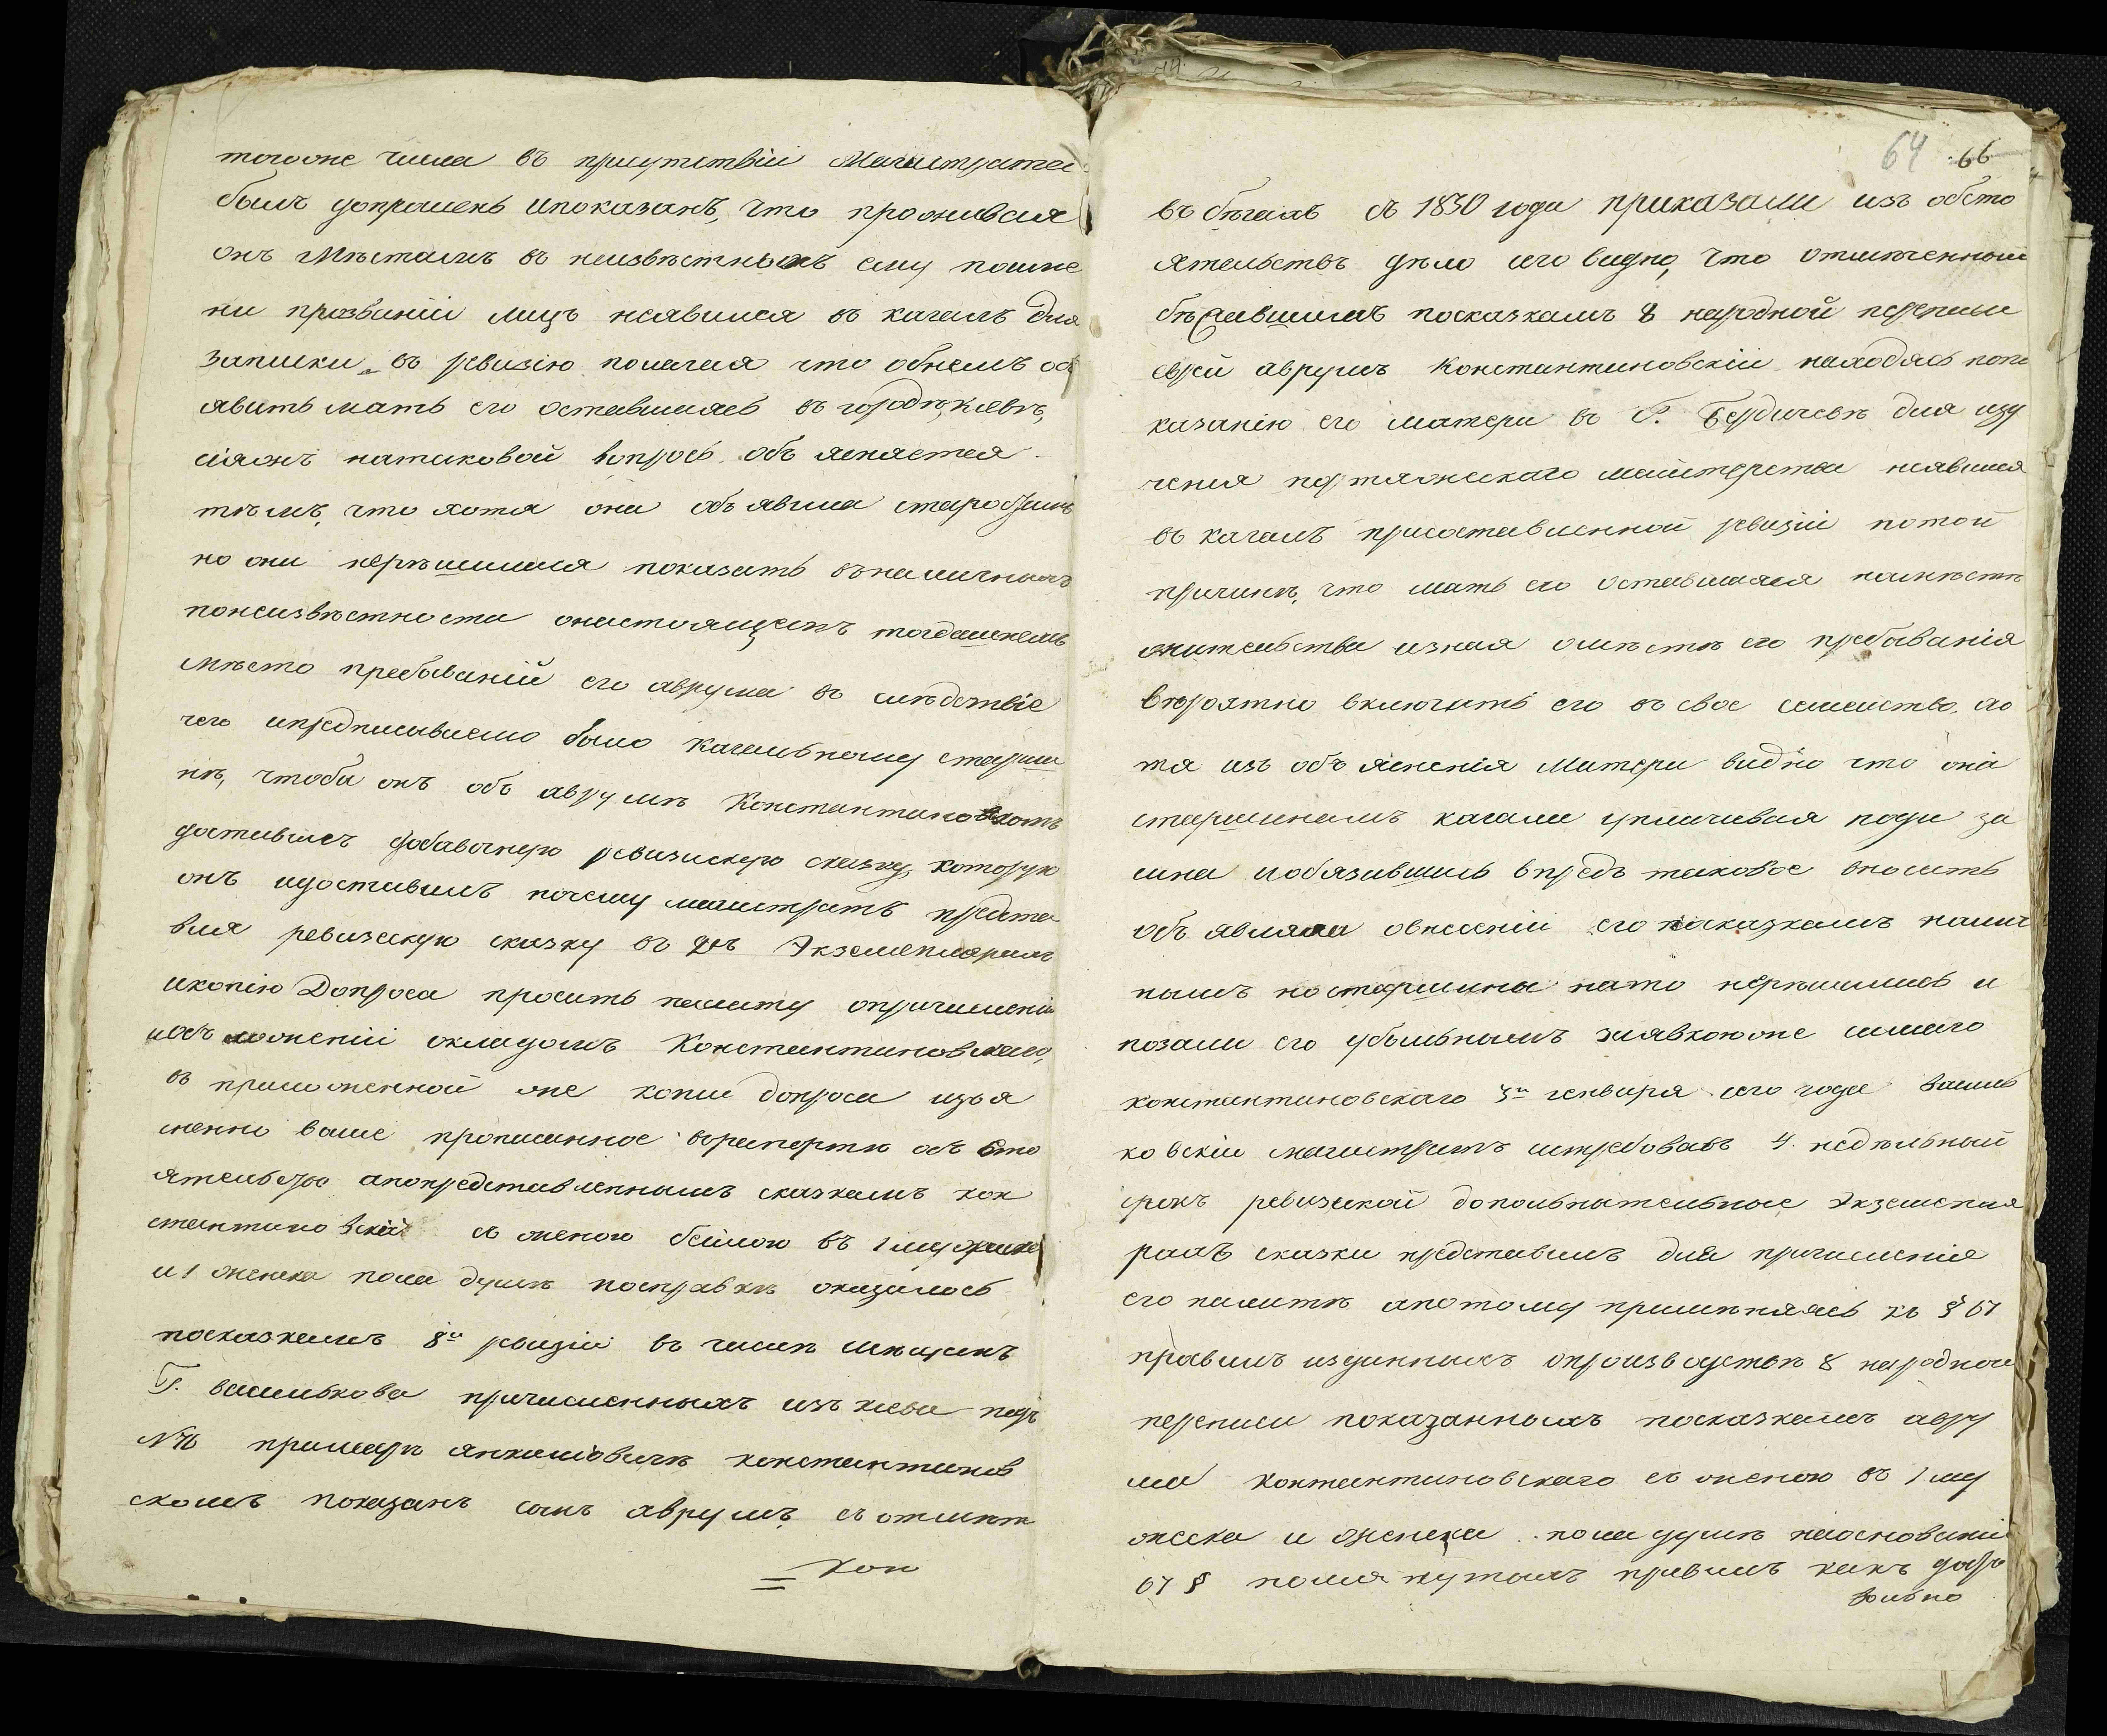 тогоже числа въ присутствіи Магистрата
былъ допрошенъ ипоказанъ, что проживая
онъ Мѣстамъ въ неизвѣстныхъ ему поиме
ни прозваніи лицъ неявился въ кагалъ для
записки въ ревизію полагая что обнемъ объ
явитъ мать его оставшаяся въ городѣ кіевѣ,
сіяжъ натаковой вопросъ объ ясняется
тѣмъ, что хотя она объ явила старѣйшинѣ
но они нерѣшилися показать въналичныхъ
понеизвѣстности онастоящемъ тогдашнемъ
мѣсто пребываній его аврума въ слѣдствіе
чего ипредписываемо было Кагальному старши
нѣ, чтобы онъ объ аврумѣ Константиновскомъ
доставилъ добавочную ревизискую сказку, которую
онъ идоставилъ почему магистратъ предста
вля ревизскую сказку въ 2хъ Экземплярахъ
икопію Допроса проситъ палату опричисленіи
иобъ ложеніи окладомъ Константиновскаго,
въ приложенной же копіи допроса изъя
снено выше прописанное врапортѣ объ сто
ятельство апопредставленнымъ сказкамъ кон
стантиновскій съ женою бейлою въ 1 мужеска
и 1 женска пола душѣ посправкѣ оказалось
посказкамъ 8й ревизіи въ числѣ мѣщанъ
Г. василькова причисленныхъ изъ кіева подъ
№ 76 примѣръ янкеліовичѣ константинов
скомъ показанъ сынъ аврумъ съ отмѣт
кою
64 66
въ бѣгахъ съ 1830 года приказали изъ обсто
ятельствъ дѣло сего видно, что отмѣченный
бѣжавшимъ посказкамъ 8 народной переписи
еврей аврумъ Константиновскій находясь попо
казанію его матери въ Г. Бердичевѣ для изу
ченія портяжескаго майстерства неявился
въ кагалъ присоставленной ревизіи потой
причинѣ, что мать его оставшаяся намѣстѣ
жительства изная омѣстѣ его пребыванія
вѣроятно включитъ его въ свое семейство, хо
тя изъ объ ясненія Матери видно что она
старшинамъ кагала уплачивая пода за
сына иобязавшись впредь таковое вносить
объ являла овнесеніи его посказкамъ налич
нымъ ностаршины нато нерѣшились и
позали его убылымъ заявкоюже самаго
константиновскаго 3го генваря сего года Василь
ковскій магистратъ истребовавъ 4. недѣльный
срокъ ревизской допольнательные Экземпля
рахъ сказки представилъ для причисленія
его палатѣ апотому примѣняясь къ § 67
правилъ изданныхъ опроизводствѣ 8 народной
переписи показанныхъ посказкамъ авру
ма контантиновскаго съ женою въ 1 му
жеска и женска пола душѣ наоснованіи
67 § помянутыхъ правилъ какъ добро
вольно